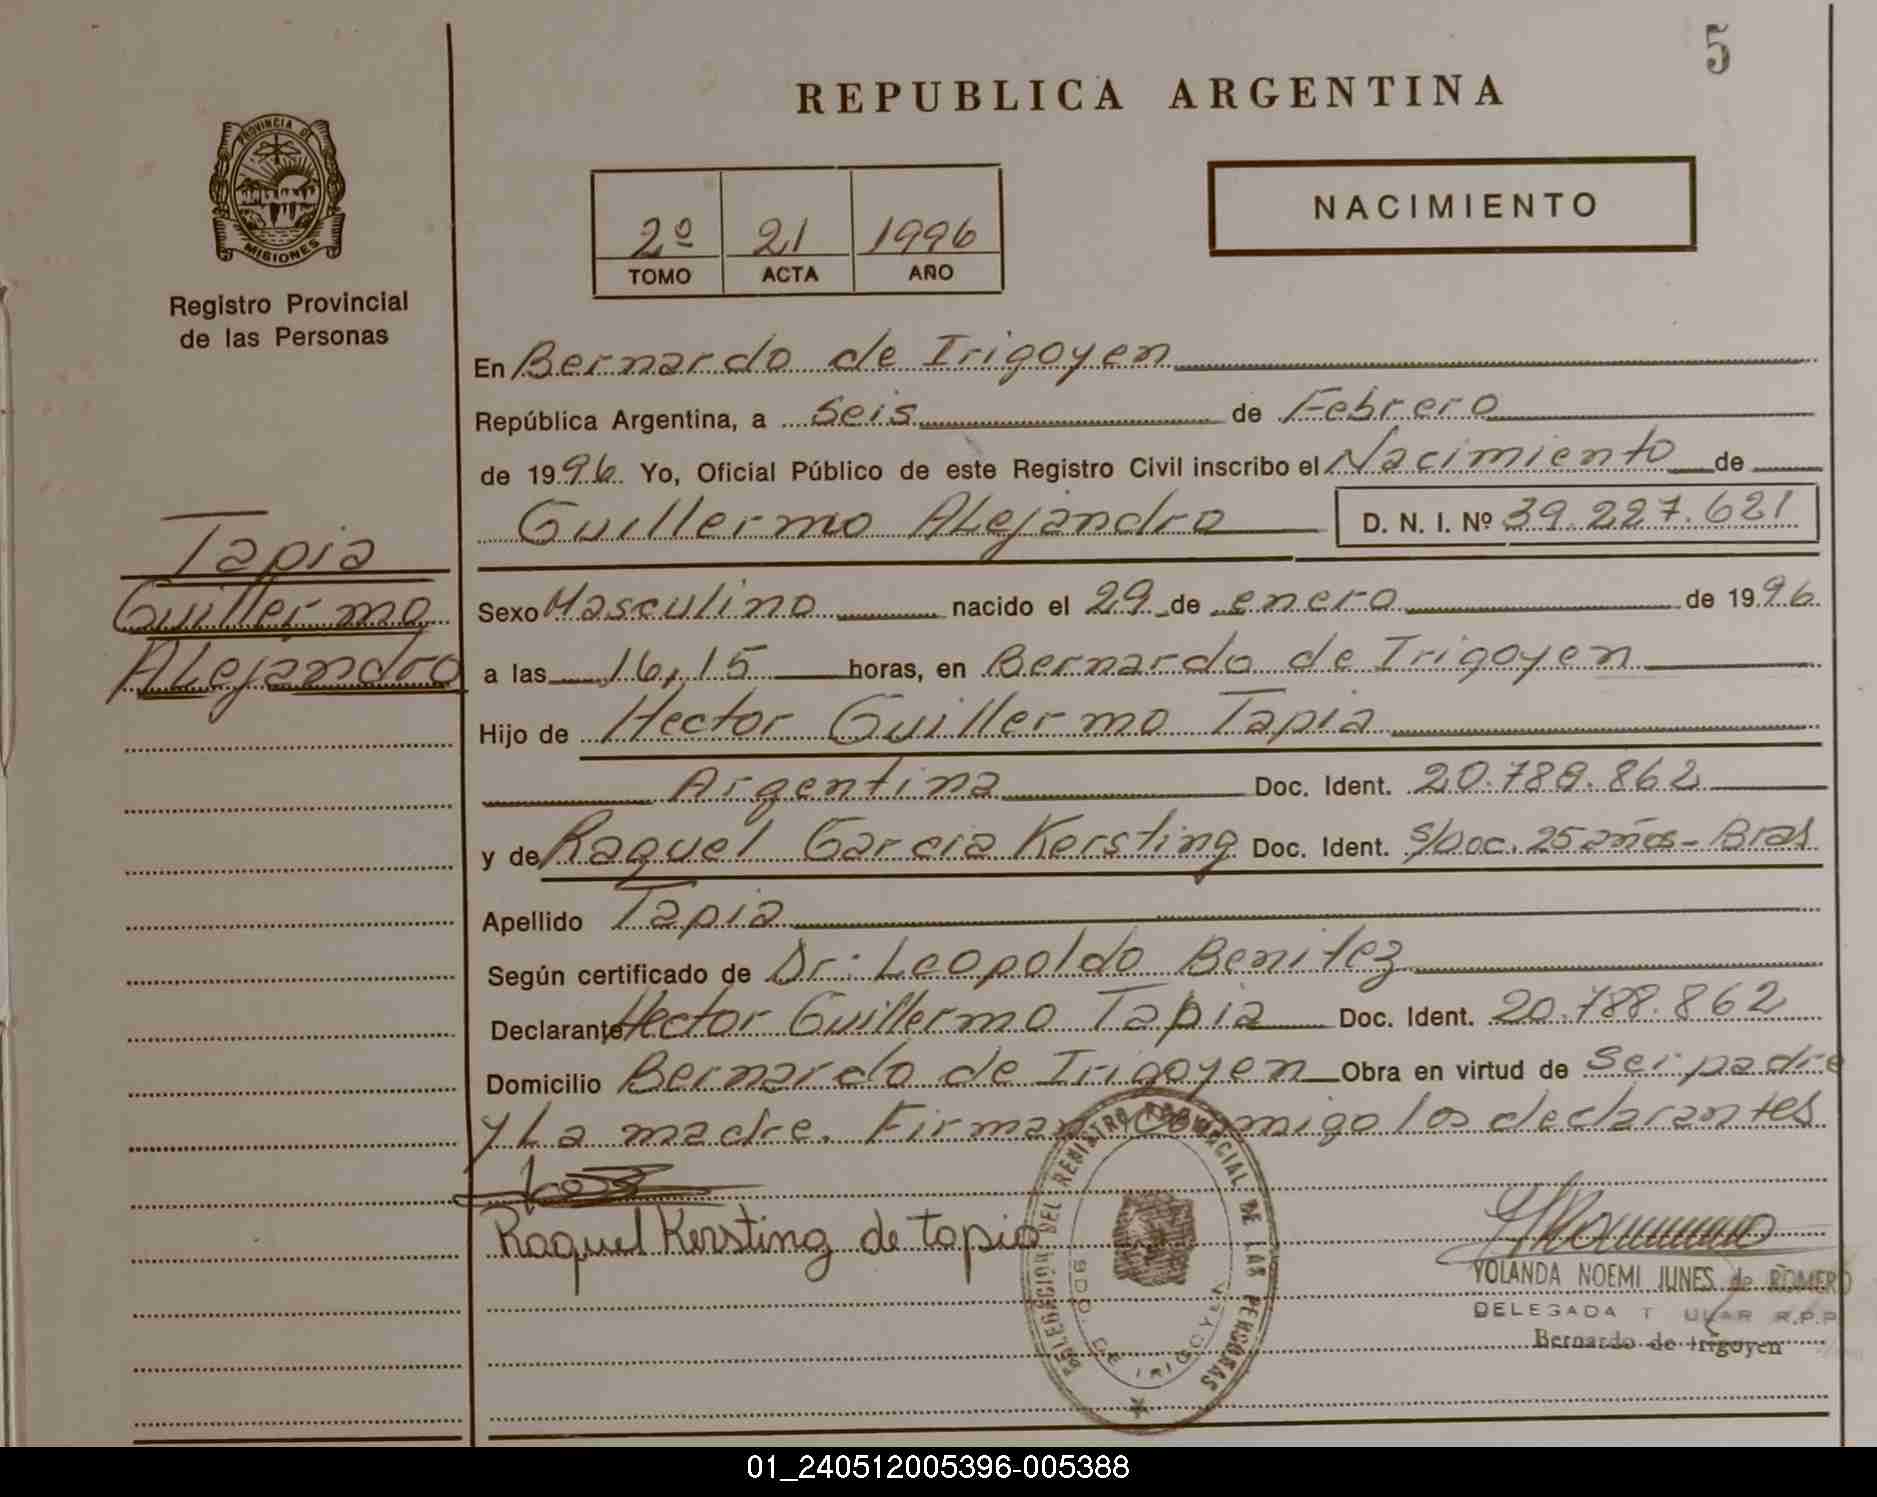 5
REPUBLICA ARGENTINA
PROVINCIA DE
MISIONES
Registro Provincial
de las Personas
2º 21 1996
TOMO ACTA AÑO
NACIMIENTO
En Bernardo de Irigoyen
República Argentina, a Seis de Febrero
de 1996 Yo, Oficial Público de este Registro Civil inscribo el Nacimiento de
Guillermo ALejandro D. N. I. Nº 39.227.621
Tapia
Guillermo
ALejandro
Sexo Masculino nacido el 29 de enero de 1996
a las 16,15 horas, en Bernardo de Irigoyen
Hijo de Hector Guillermo Tapia
Argentina Doc. Ident. 20.788.862
y de Raquel Garcia Kersting Doc. Ident. s/Doc. 25 años - Bras
Apellido Tapia
Según certificado de Dr: Leopoldo Benitez
Declarante Hector Guillermo Tapia Doc. Ident. 20.788.862
Domicilio Bernardo de Irigoyen Obra en virtud de Ser padre
y La madre. Firman Conmigo los declarantes
Raquel Kersting de tapia
DELEGACIÓN DEL REGISTRO PROVINCIAL DE LAS PERSONAS
BDO. DE IRIGOYEN
YOLANDA NOEMI JUNES de ROMERO
DELEGADA T ULAR R.P.P
Bernardo de Irigoyen
01_240512005396-005388